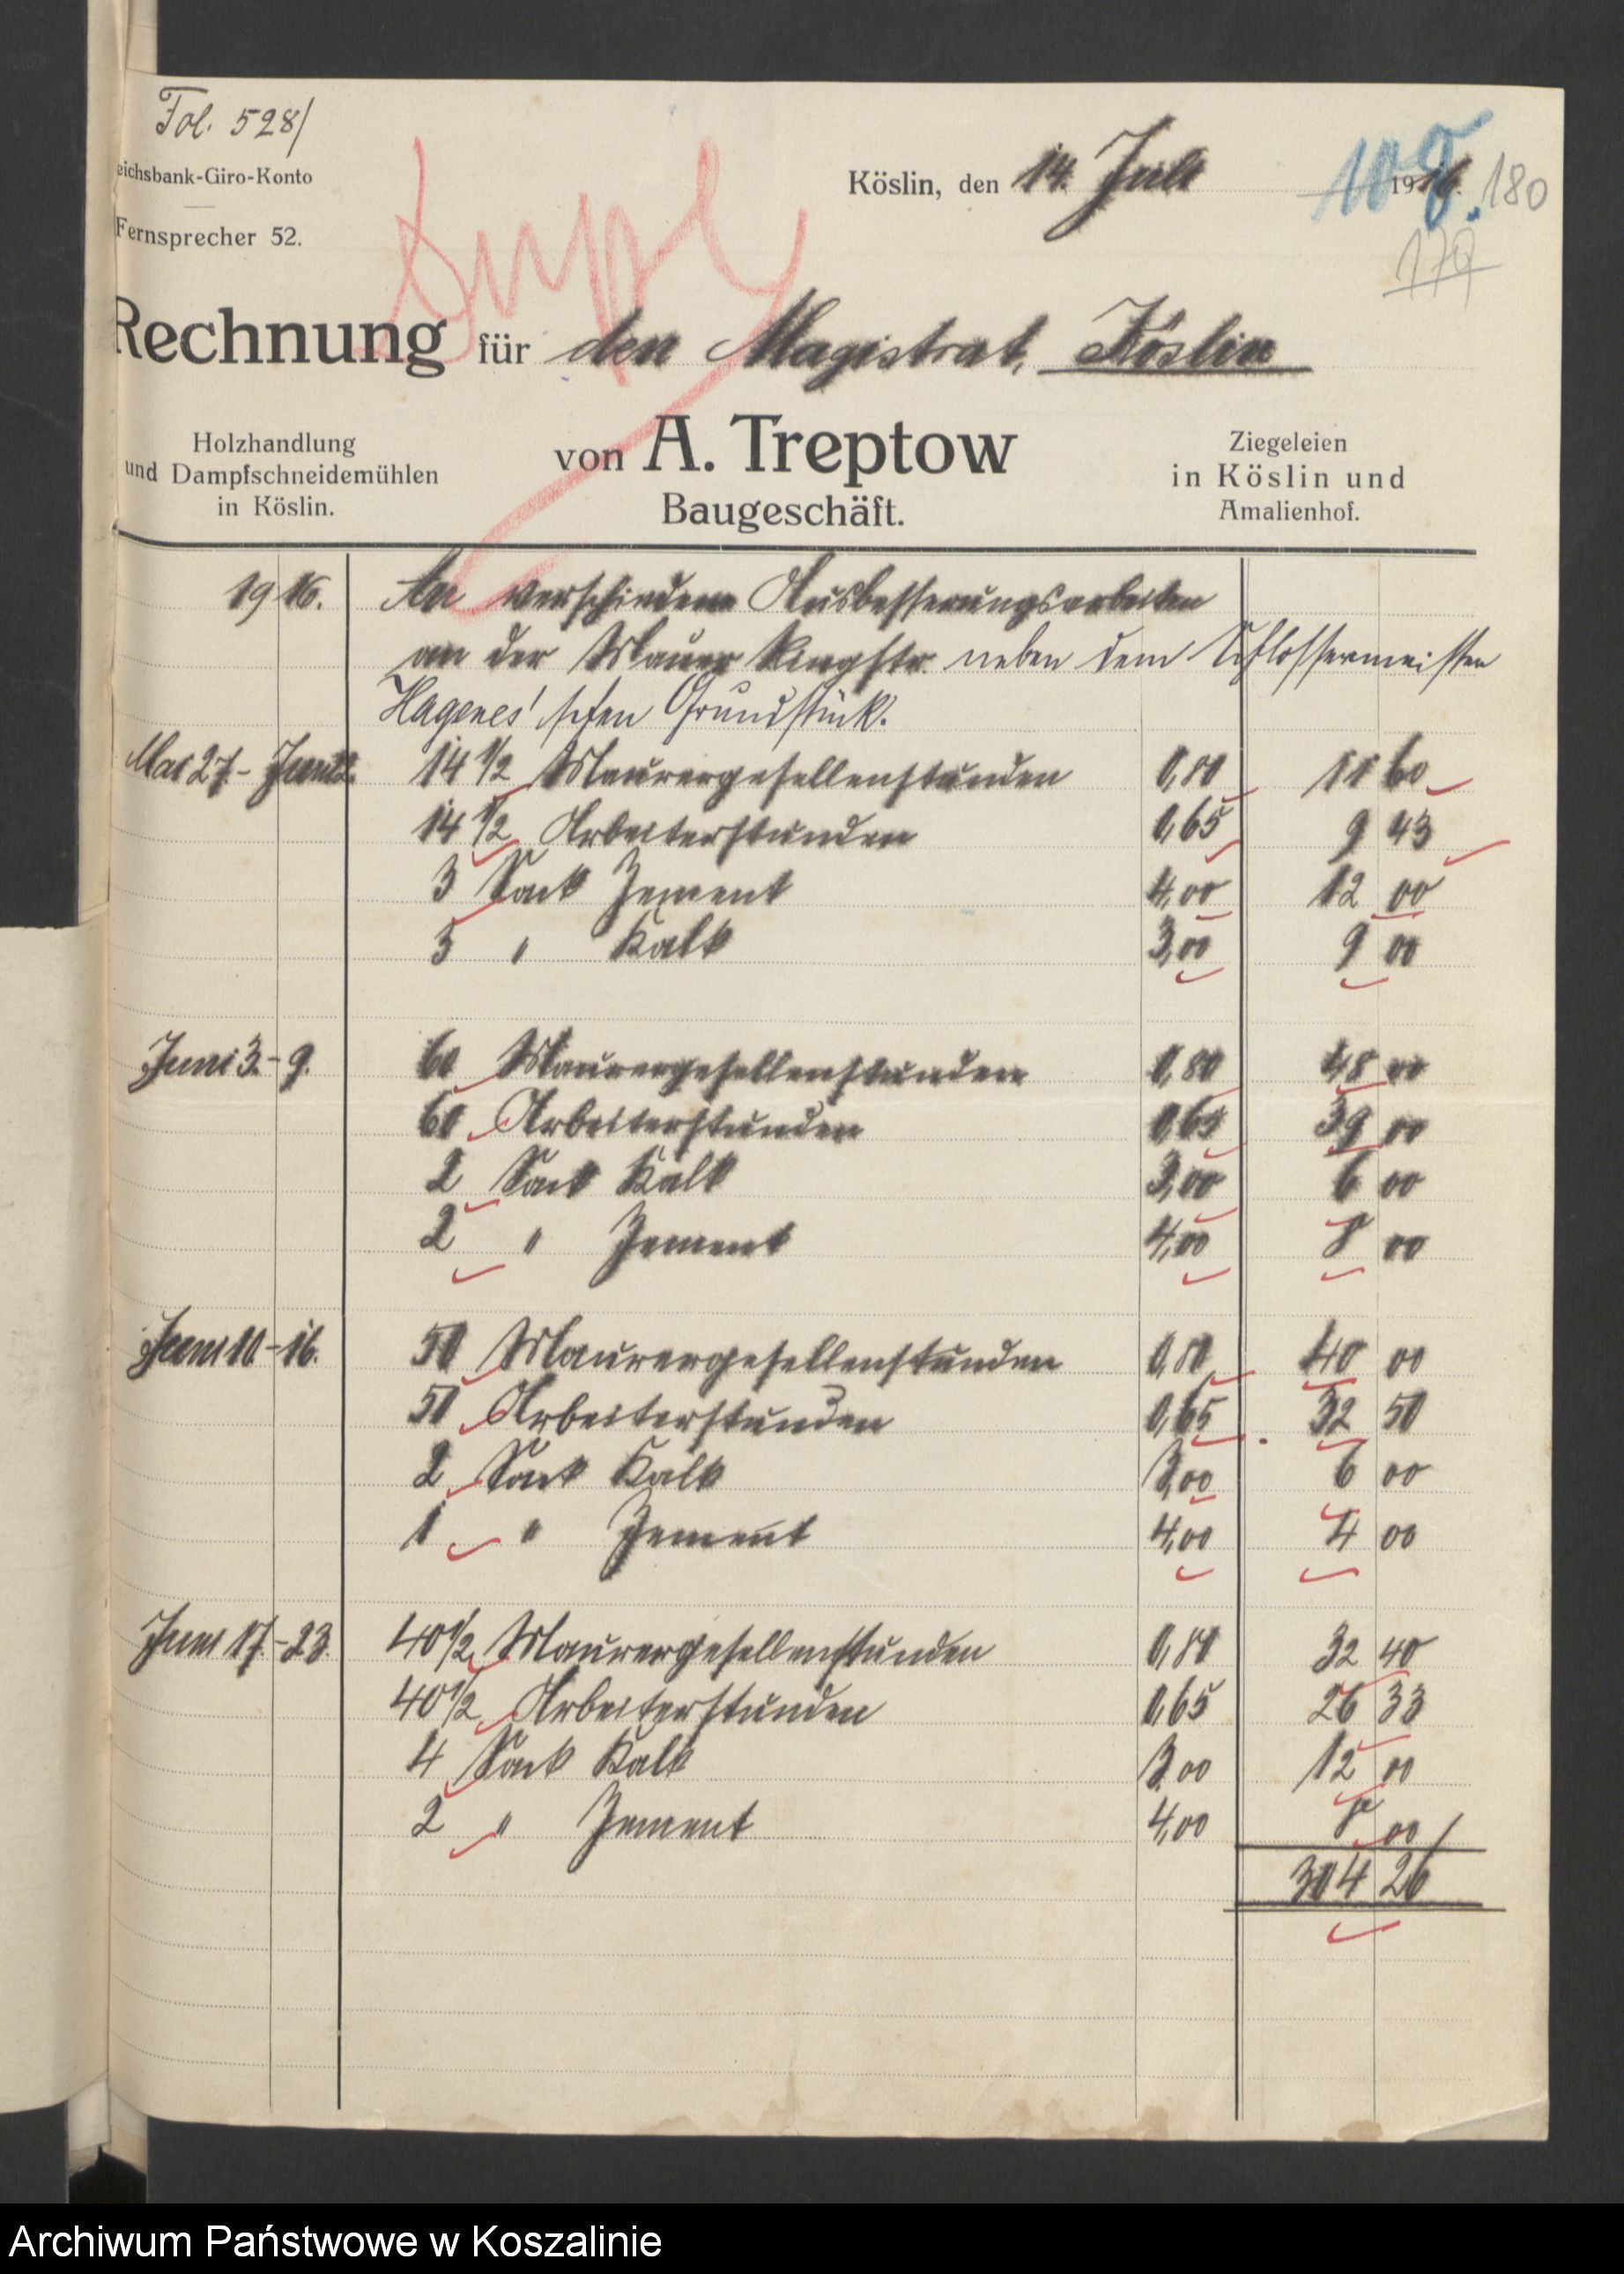 Fol. 528/
eichsbank-Giro-Konto
Fernsprecher 52.
Köslin, den 14. Juli 1916.
108.
180
179
Dupl
Rechnung für den Magistrat, Köslin
Holzhandlung
und Dampfschneidemühlen
in Köslin.
von A. Treptow
Baugeschäft.
Ziegeleien
in Köslin und
Amalienhof.
1916. An verschiedene Ausbesserungsarbeiten
an der Mauer Ringstr. neben dem Schlossermeister
Hagenes'schen Grundstück.
Mai 27.- Juni 2. 14 1/2 Maurergesellenstunden 0,80 11 60
14 1/2 Arbeiterstunden 0,65 9 43
3 Sack Zement 4,00 12 00
3 " Kalk 3,00 9 00
Juni 3.- 9. 60 Maurergesellenstunden 0,80 48 00
60 Arbeiterstunden 0,65 39 00
2 Sack Kalk 3,00 6 00
2 " Zement 4,00 8 00
Juni 10-16. 50 Maurergesellenstunden 0,80 40 00
50 Arbeiterstunden 0,65 32 50
2 Sack Kalk 3,00 6 00
1 " Zement 4,00 4 00
Juni 17.-23. 40 1/2 Maurergesellenstunden 0,80 32 40
40 1/2 Arbeiterstunden 0,65 26 33
4 Sack Kalk 3,00 12 00
2 " Zement 4,00 8 00
304 26
Archiwum Państwowe w Koszalinie